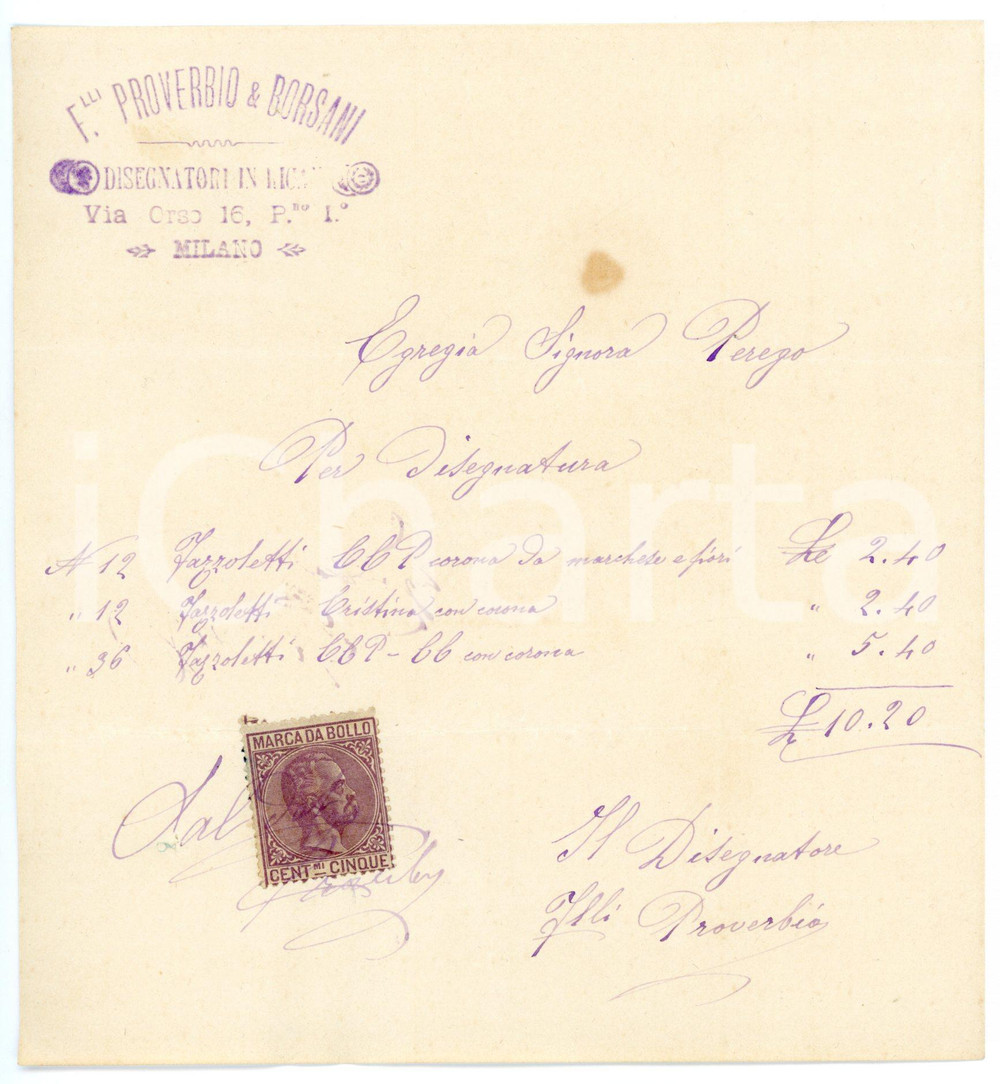 F.LLI PROVERBIO & BORSANI
DISEGNATORI IN
Via Orso 16, P.no I.o
MILANO
Egregia Signora Perego
Per Disegnatura
N 12 Fazzoletti CCP corona da marchese e fiori Le 2.40
" 12 Fazzoletti Cristina con corona " 2.40
" 36 Fazzoletti CCP - CC con corona " 5.40
L 10.20
MARCA DA BOLLO
CENT.MI CINQUE
Sal
Il Disegnatore
Flli Proverbio
iCharta